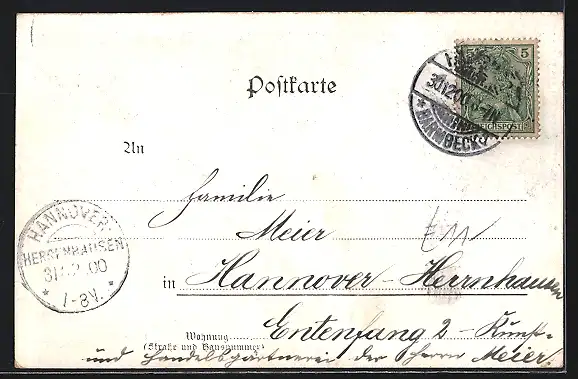 5
REICHSPOST
30/12 00 6-7N
* BARMBECK *
Postkarte
An
Familie
Meier
in Hannover - Herrnhausen
Wohnung
(Straße und Hausnummer)
Entenfang 2 - Kunst-
und Handelsgärtnerei der Herrn Meier.
HANNOVER
HERRENHAUSEN
31/12.00
* 1-8V. *